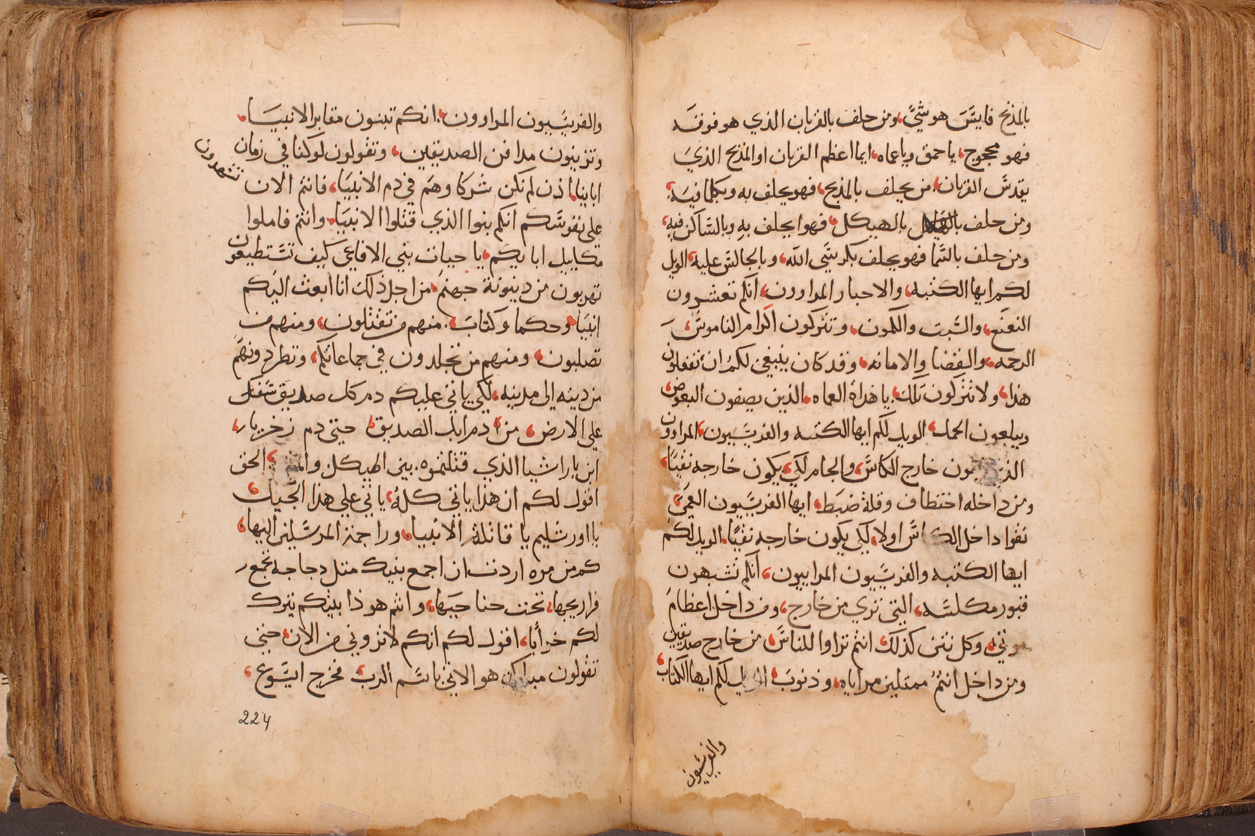 بالمذبح فايسَ هو شيَّ، ومن حلف بالقربان الذي هو فوقه
فهو محجوج، ياحمق وياعماه، ايما اعظم القربان او المذبح الذي
يقدس القربان، من يحلف بالمذبح، فهو يحلف به وبكلما فيه،
ومن حلف بالهيكل، فهوا يحلف به وبالساكن فيه،
ومن حلف بالسما فهو يحلف بكرسَي الله، وبالجالس عليه، الويل
لكم ايها الكتبه، والاحبار المراوون، انكم تعشرون
النعنع، والشبت والكمون، وتتركون اكرام الناموس
الرحمه، والقضا والامانه، وقد كان ينبغي لكم ان تفعلون
هذا، ولا تتركون تلك، يا هداة العماه، الذين يصفون البعوض
ويبلعون الجمل، الويل لكم ايها الكتبه والفريسَيون، المراوون
خارج الكاسَ، والجام لكي يكون خارجه نقيًا،
ومن داخله اختطاف وقلة ضبط، ايها الفريسَيون العمي
نقوا داخل الكاسَ اولا، لكي يكون خارجه نقيًا، الويل لكم
ايها الكتبه والفريسَيون المراييون، انكم تشبهون
قبور مكلسَه، التي تري من خارج، ومن داخل اعظام
موتي، وكل نتن كذلك انتم تراوا للناسَ من خارج صديقين
ومن داخل انتم ممتلين مراياه، وذنوب الويل لكم ايها الكتاب
والفريسَيون
والفريسَيون المراوون، انكم تبنون مقابر الانبيا،
وتزينون مدافن الصديقين، وتقولون لو كنا في زمان
ابايناا ذن لم نكن شركا وهم في دم الانبيا، فانتم الان
تشهدون
على نفوسَكم انكم بنوا الذي قتلوا الانبيا، وانتم فاملوا
مكاييل ابايكم، يا حيات بني الافاعي كيف تسَتطيعون
تهربون من دينونة جهنم، من اجل ذلك انا ابعث اليكم
انبيا، وحكما وكتاب، منهم من تقتلون، ومنهم من
تصلبون، ومنهم من تجلدون في جماعاتكم، وتطردونهم
من دينه الي مدينه، لكي ياتي عليكم دم كل صديق سَفك
علي الارض، من دم ابك الصديق حتي دم زخريا،
ابن باراشيا الذي قتلتموه، بين الهيكل الحق
اقول لكم ان هذا ياتي كله، ياتي علي هذا الجيل،
يا اورشليم يا قاتلة الانبيا، وراجمة المرسَلين اليها،
كم من مره اردت ان اجمع بنيك مثل دجاجه تجمع
فراريجها، تحت جناحيها، وانتم هوذا بيتكم يترك
لكم خرابا، اقول لكم انكم لا تروني من الان حتي
تقولون مبارك هو الاتي باسَم الرب، مخرج ايسَوع،
224